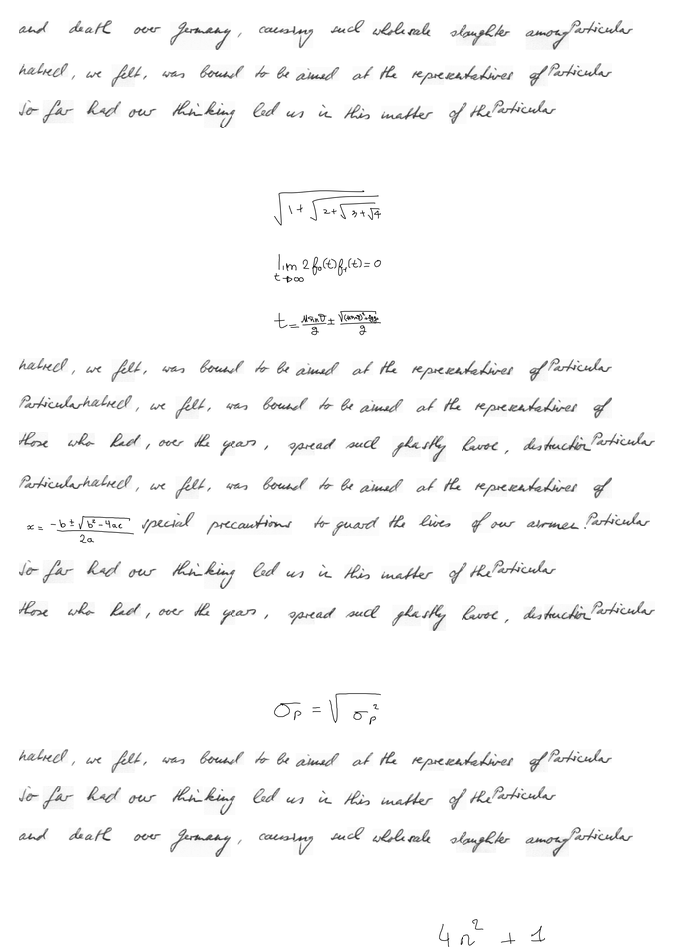 and death over Germany, causing such wholesale slaughter among Particular
hatred, we felt, was bound to be aimed at the representatives of Particular
So far had our thinking led us in this matter of the Particular
√(1+√(2+√(3+√4)))
lim t→∞ 2f₀(t)f₁(t)=0
t = (u sin θ)/g ±
hatred, we felt, was bound to be aimed at the representatives of Particular
Particular hatred, we felt, was bound to be aimed at the representatives of
those who had, over the years, spread such ghastly havoc, destruction Particular
Particular hatred, we felt, was bound to be aimed at the representatives of
x = (-b ± √(b²-4ac))/2a special precautions to guard the lives of our airmen. Particular
So far had our thinking led us in this matter of the Particular
those who had, over the years, spread such ghastly havoc, destruction Particular
σₚ = √(σₚ²)
hatred, we felt, was bound to be aimed at the representatives of Particular
So far had our thinking led us in this matter of the Particular
and death over Germany, causing such wholesale slaughter among Particular
4n² + 1